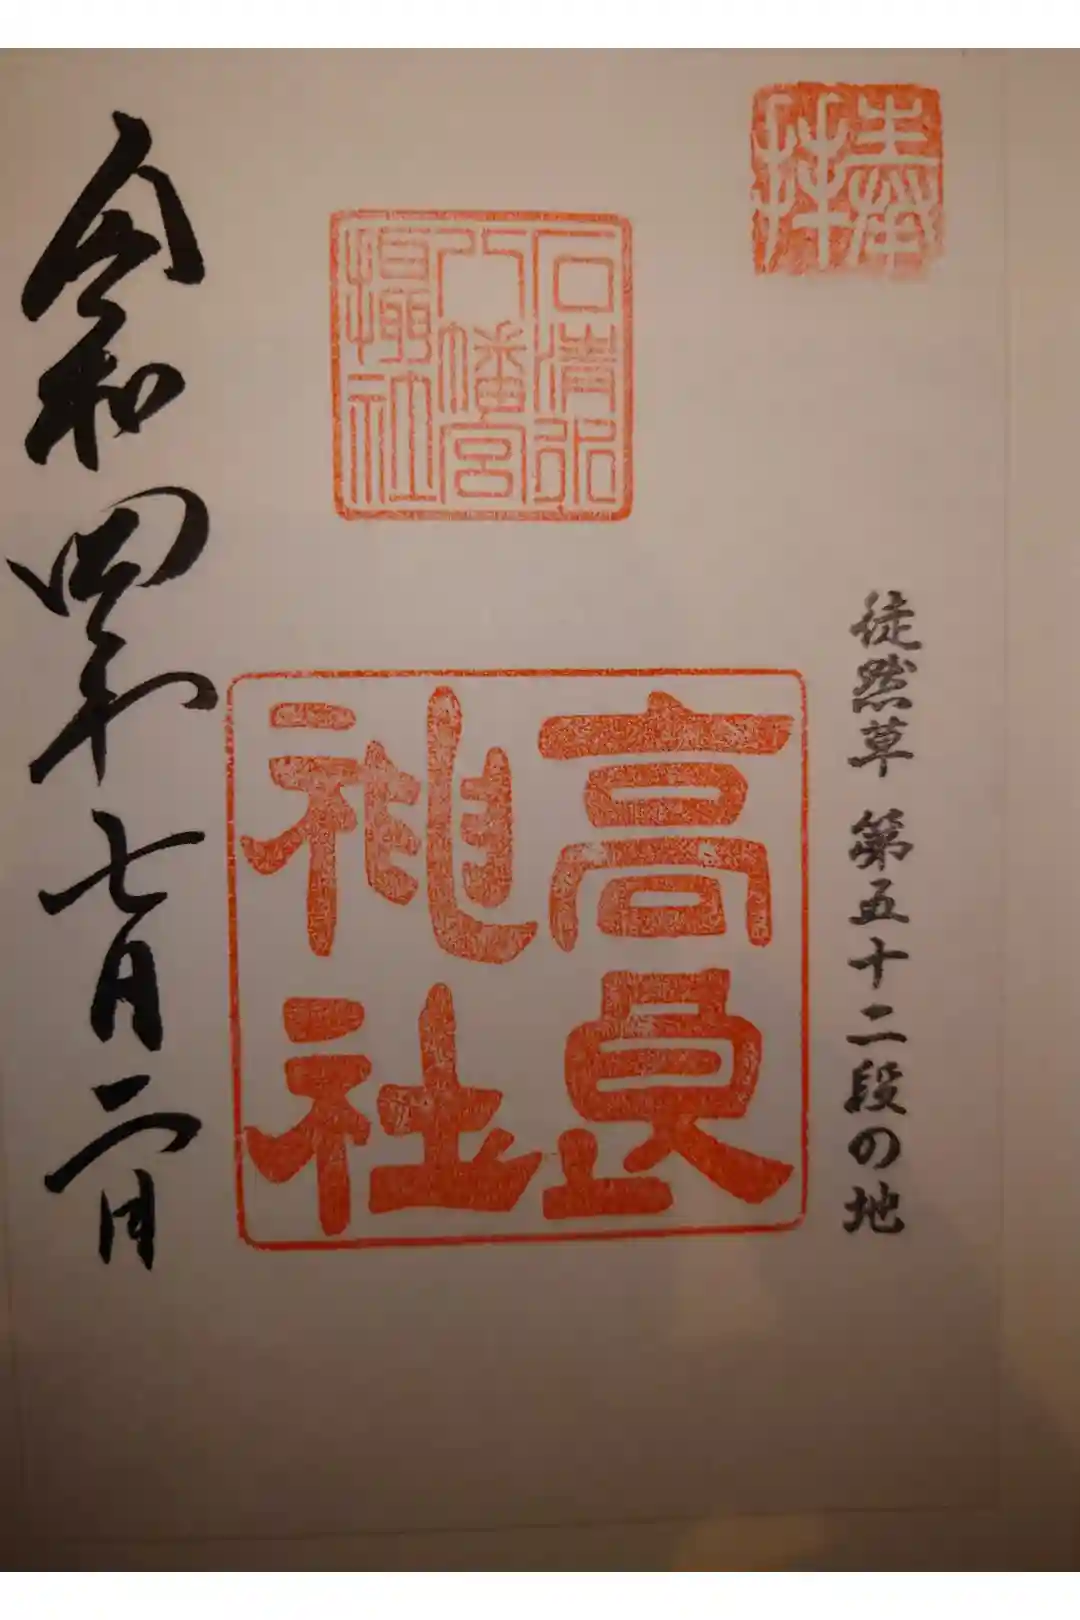 奉拝
徒然草 第五十二段の地
石清水
八幡宮
攝社
高良
神社
令和四年七月二日